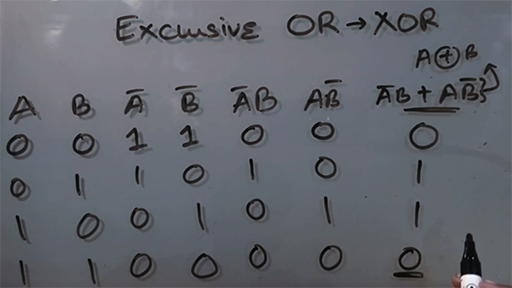 Exclusive OR → XOR
A ⊕ B
A B A̅ B̅ A̅B AB̅ A̅B + AB̅}
0 0 1 1 0 0 0
0 1 1 0 1 0 1
1 0 0 1 0 1 1
1 1 0 0 0 0 0